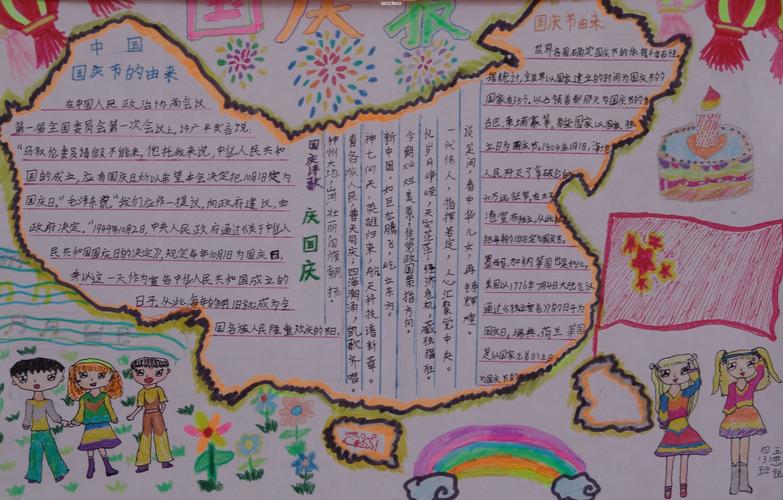 国庆报
中国
国庆节的由来
在中国人民政治协商会议
第一届全国委员会第一次会议上，许广平发言说:
“马叙伦委员请假不能来，他托我来说，中华人民共和
国的成立，应有国庆日，所以希望本会决定把10月1日定为
国庆日。”毛泽东说“我们应作一提议，向政府建议，由
政府决定。”1949年10月2日，中央人民政府通过《关于中华人
民共和国国庆日的决定》，规定每年10月1日为国庆日，
来以这一天作为宣告中华人民共和国成立的
日子。从此，每年的10月1日就成为全
国各族人民隆重欢庆的节日。
国庆诗歌
庆国庆
神州大地，山河壮丽，国旗飘扬。
看各族人民，普天同庆，四海潮涌，凯歌齐唱。
神七问天，英雄归来，航天科技谱新章。
新中国，如巨龙腾飞，屹立东方。
今朝灿烂美景，凭党政国策指方向。
忆岁月峥嵘，天灾茫茫，经济危机，藏独猖狂。
一代伟人，指挥若定，人心汇聚党中央。
谈笑间，看中华儿女，再铸辉煌。
国庆节由来
世界各国确定国庆节的依据千奇百怪。
据统计，全世界以国家建立的时间为国庆节的
国家有35个。以占领首都那天为国庆节的有
古巴、柬埔寨等。有些国家以国家独
立日为国庆节。1804年1月1日，海地
人民歼灭了拿破仑的
六万远征军，在太子
港宣布独立，从此就
把每年的1月1日定为国庆节。
墨西哥、加纳等国也是如此。
美国以1776年7月4日大陆会议
通过《独立宣言》的日子为
国庆日。瑞典、荷兰等国
是以国家元首的生日
为国庆节的
四
班